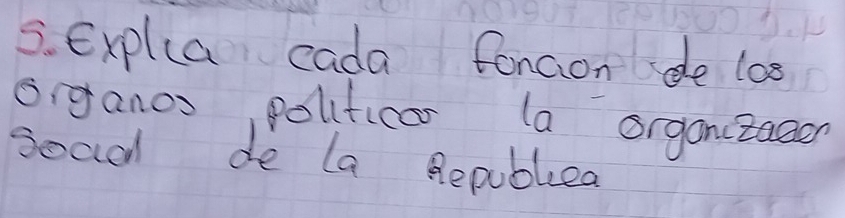 5. Explica cada foncion de los
organos politicos la organizacion
social de la Republica